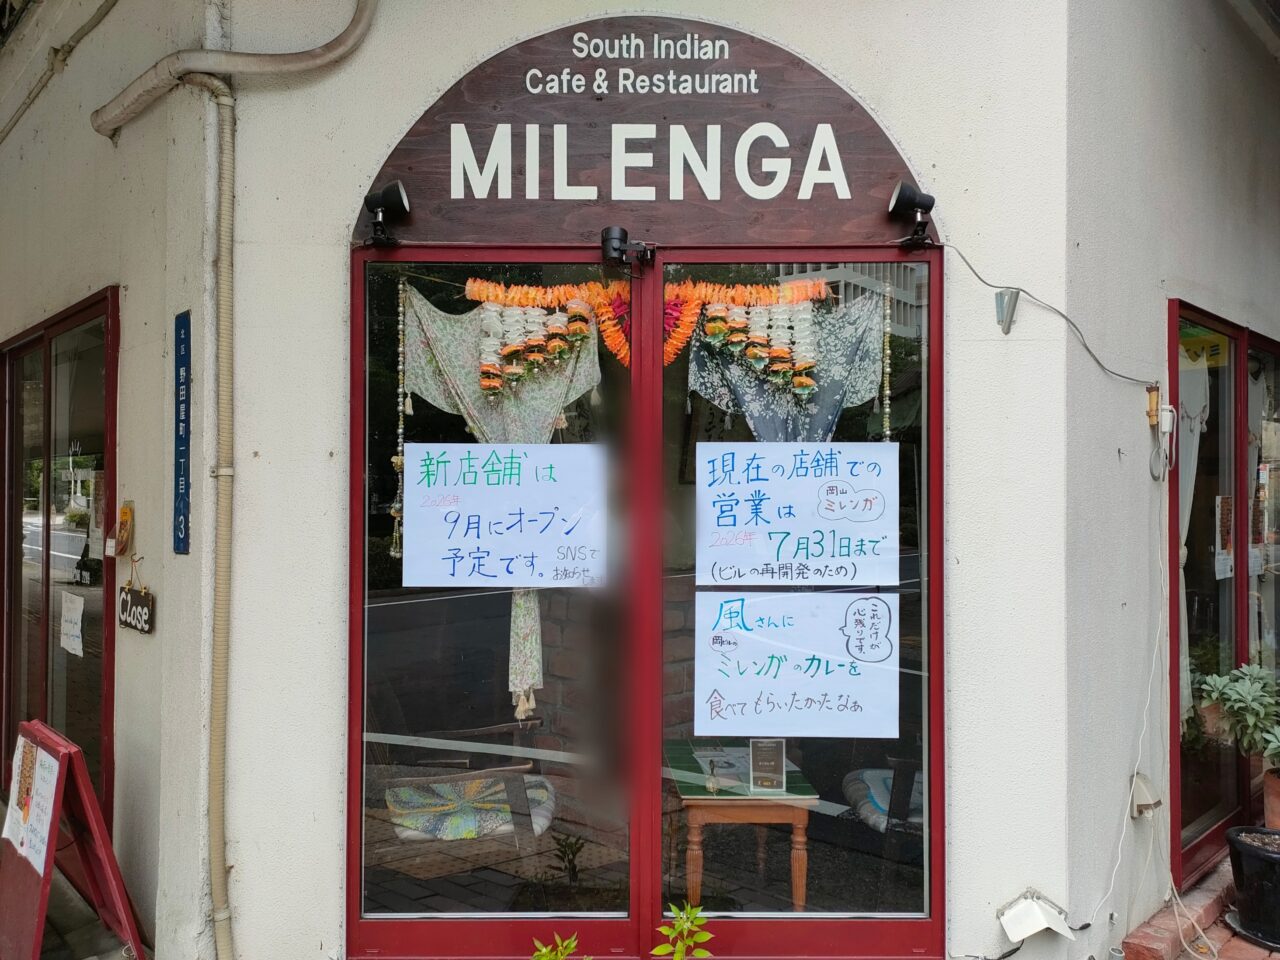 South Indian
Cafe & Restaurant
MILENGA
新店舗は
2026年
9月にオープン
予定です。
SNSで
お知らせします
現在の店舗での
営業は
岡山
ミレンガ
2026年 7月31日まで
(ビルの再開発のため)
風さんに
岡ビルの
ミレンガのカレーを
食べてもらいたかったなぁ
これだけが
心残りです。
北区 野田屋町一丁目 3
Close